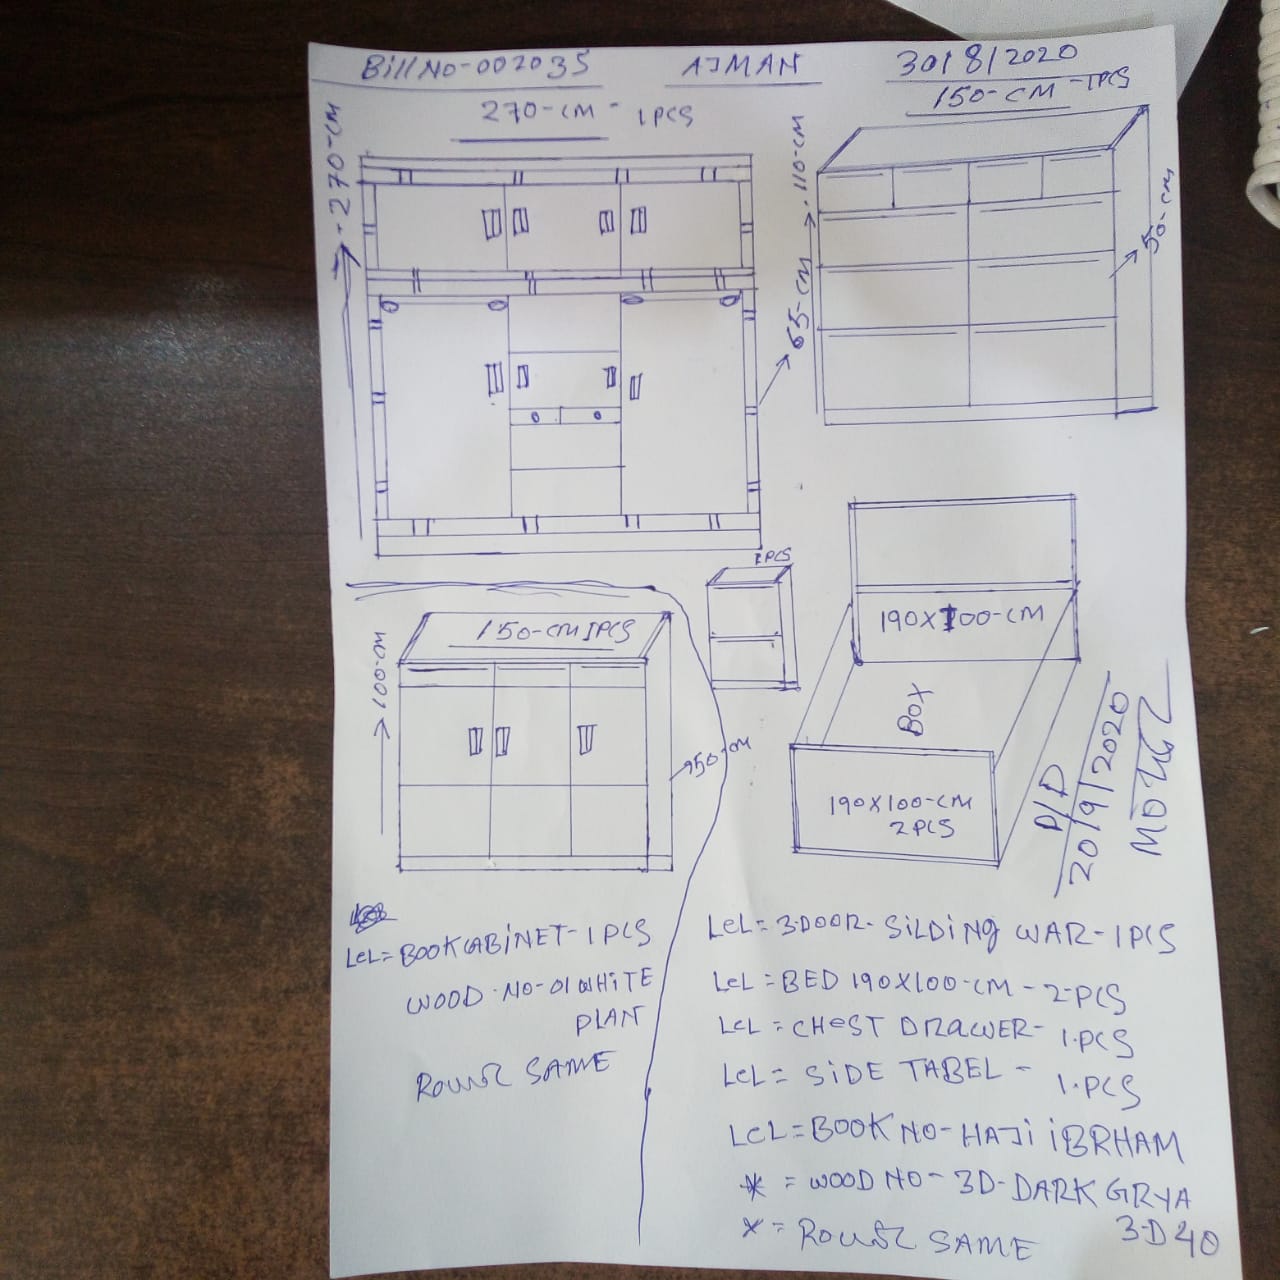 Bill NO-002035 AJMAN 30/8/2020
270-CM - 1PCS
150-CM -1PCS
270-CM
110-CM
65-CM
50-CM
1PCS
150-CM 1PCS
100-CM
50-CM
190X100-CM
BOX
190X100-CM
2PCS
P/D
20/9/2020
LCL= BOOKCABiNET- 1PCS
WOOD-NO-01 WHiTE
PLAN
SAME
LCL= 3-DOOR-SiLDiNg WAR-1PCS
LCL = BED 190X100-CM - 2-PCS
LCL = CHeST DRAWER- 1.PCS
LCL= SiDE TABEL - 1.PCS
LCL= BOOK NO-HAJi iBRHAM
* = WOOD NO- 3D-DARK GRYA
3-D40
* = SAME